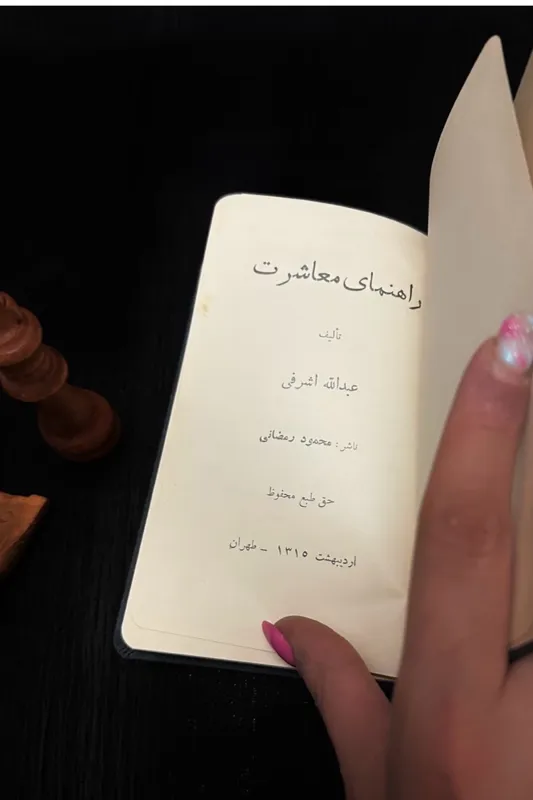 راهنمای معاشرت
تألیف
عبدالله اشرفی
ناشر : محمود رمضانی
حق طبع محفوظ
اردیبهشت ۱۳۱۵ ـ طهران